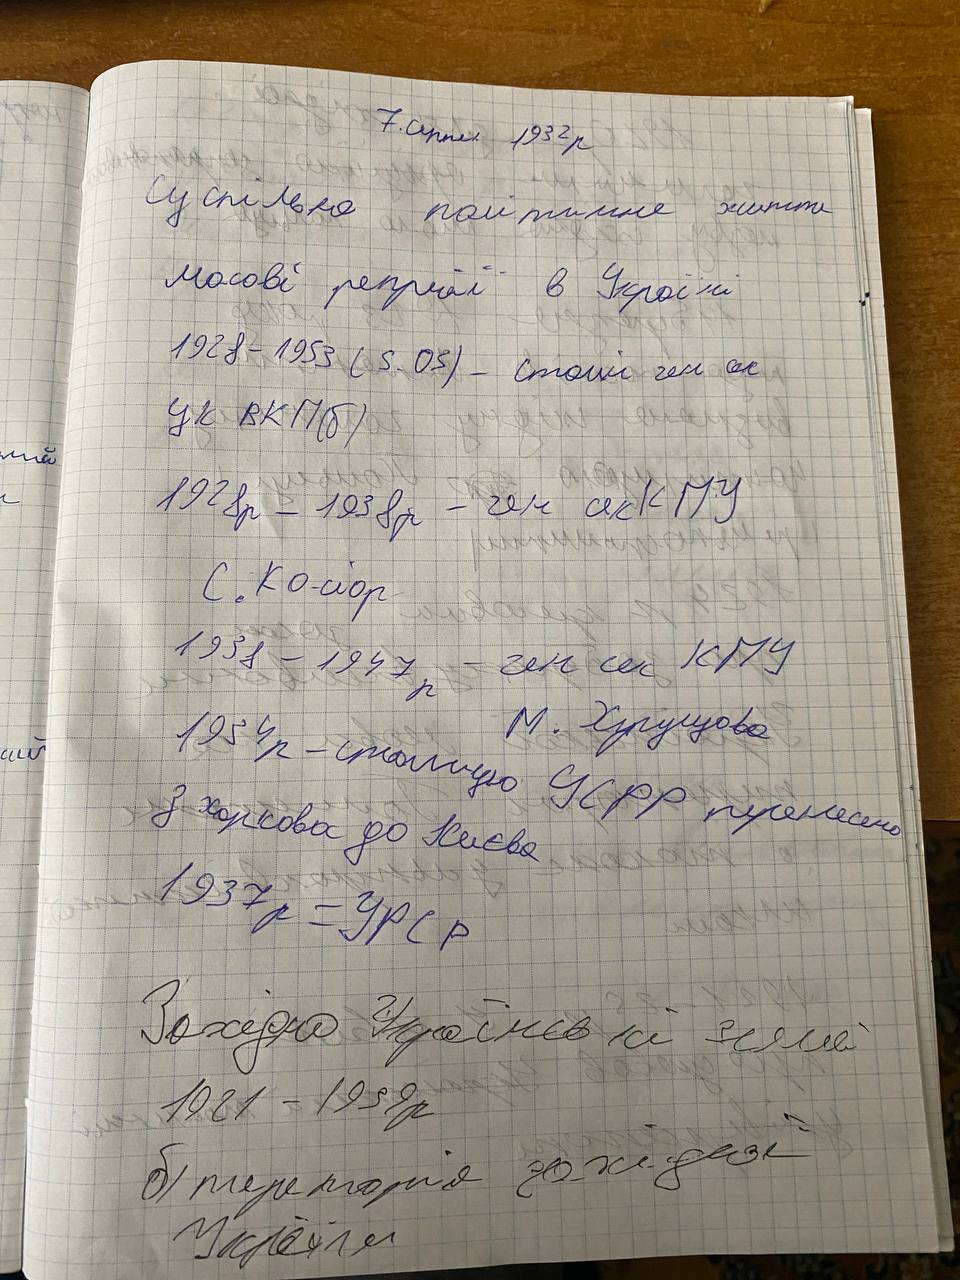 7. серпн 1932р
Суспільно політичне життя
масові репресії в Україні
1928-1953 (5.03) - сталін ген сек
ЦК ВКП(б)
1928р - 1938р - ген сек КПУ
С. Косіор
1938 - 1947р - ген сек КПУ
М. Хрущова
1934р - столицю УСРР перенесено
З харкова до Києва
1937р = УРСР
Західно Українські землі
1921 - 1939р
б) територія західної
України